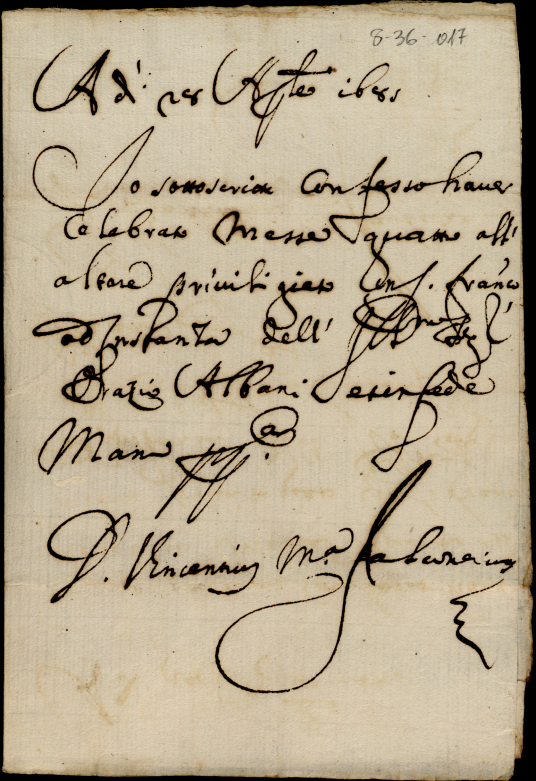 8-36-017
Adi 28 Agste 1681
Io sottoscritto Confesso haver
Celebrato Messe quatro all'
altare privilegiato in S. Franco
ad Instanza dell' Illmo Sigr
Orazio Albani et in fede
Manu ppa
D. Vincentius Ma Falconerius